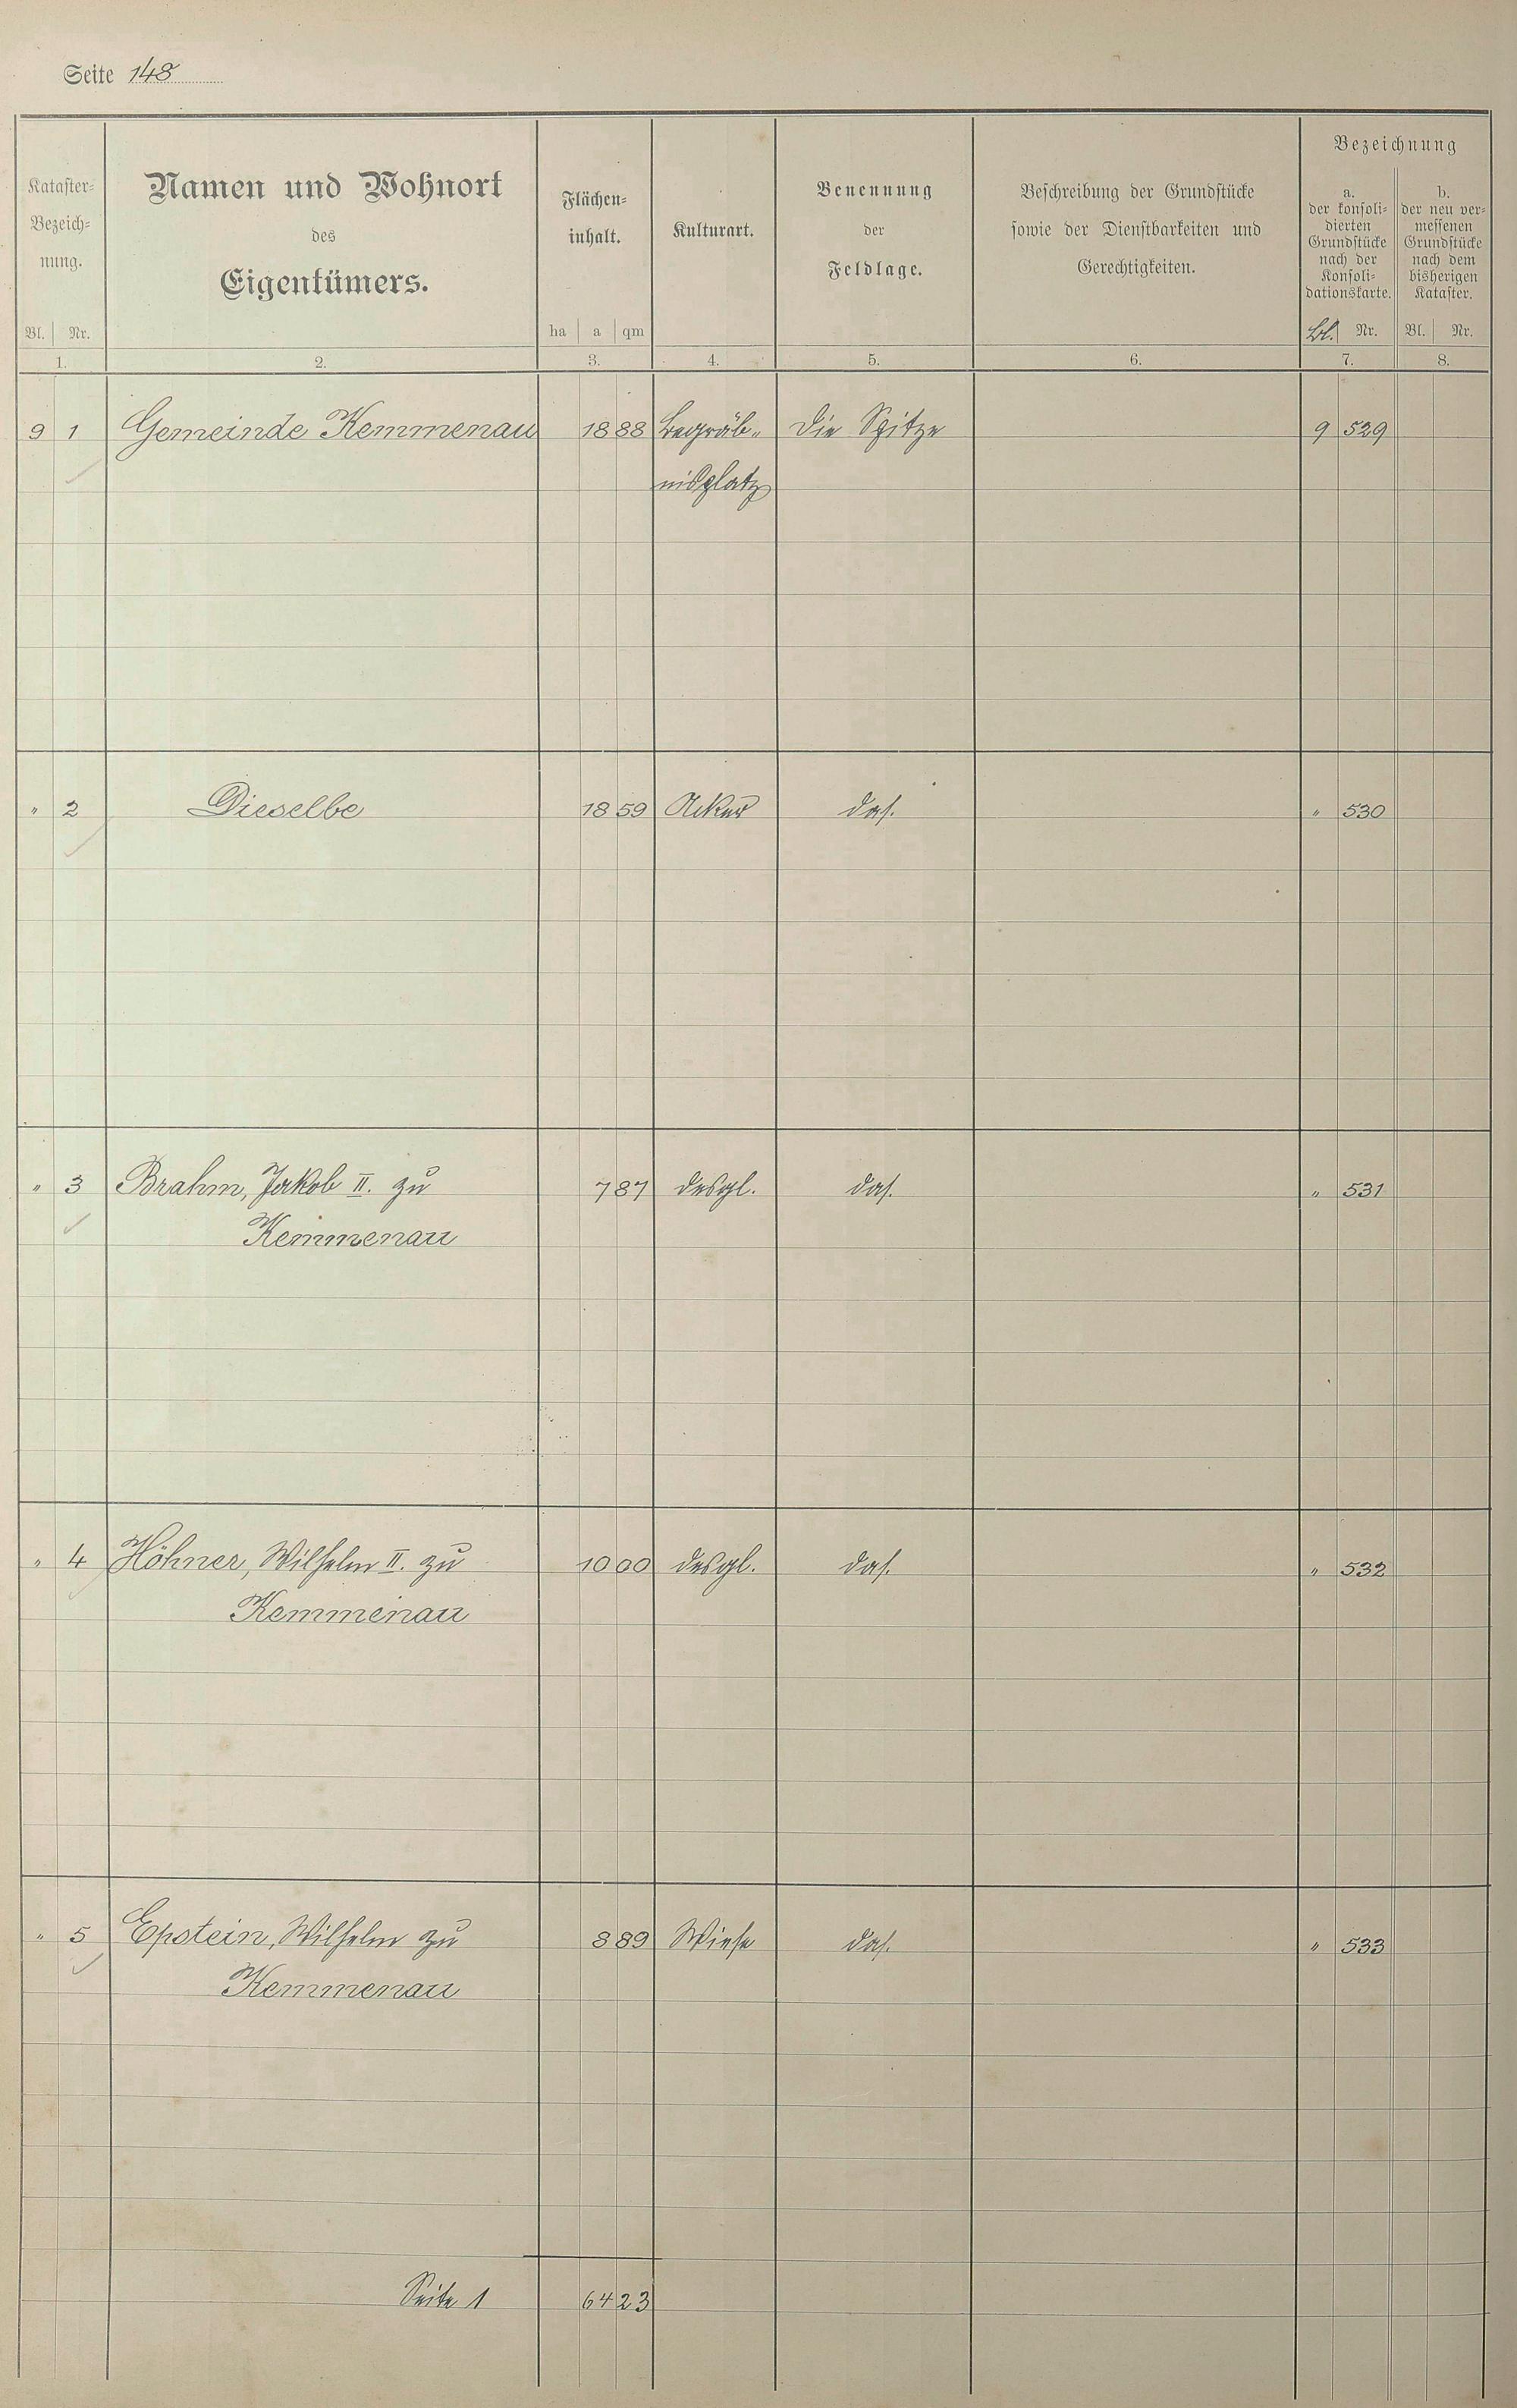 Seite 148
Kataster-
Bezeich-
nung.
Bl. Nr.
1.
Namen und Wohnort
des
Eigentümers.
2.
Flächen-
inhalt.
ha a qm
3.
Kulturart.
4.
Benennung
der
Feldlage.
5.
Beschreibung der Grundstücke
sowie der Dienstbarkeiten und
Gerechtigkeiten.
6.
Bezeichnung
a.
der konsoli-
dierten
Grundstücke
nach der
Konsoli-
dationskarte.
Bl. Nr.
7.
b.
der neu ver-
messenen
Grundstücke
nach dem
bisherigen
Kataster.
Bl. Nr.
8.
9 1 Gemeinde Kemmenau 18 88 Begräb- Die Spitze 9 529
nisplatz
" 2 Dieselbe 18 59 Acker das. " 530
" 3 Brahm, Jakob II. zu 7 87 desgl. das. " 531
Kemmenau
" 4 Höhner, Wilhelm II. zu 10 00 desgl. das. " 532
Kemmenau
" 5 Epstein, Wilhelm zu 8 89 Wiese das. " 533
Kemmenau
Seite 1 64 23